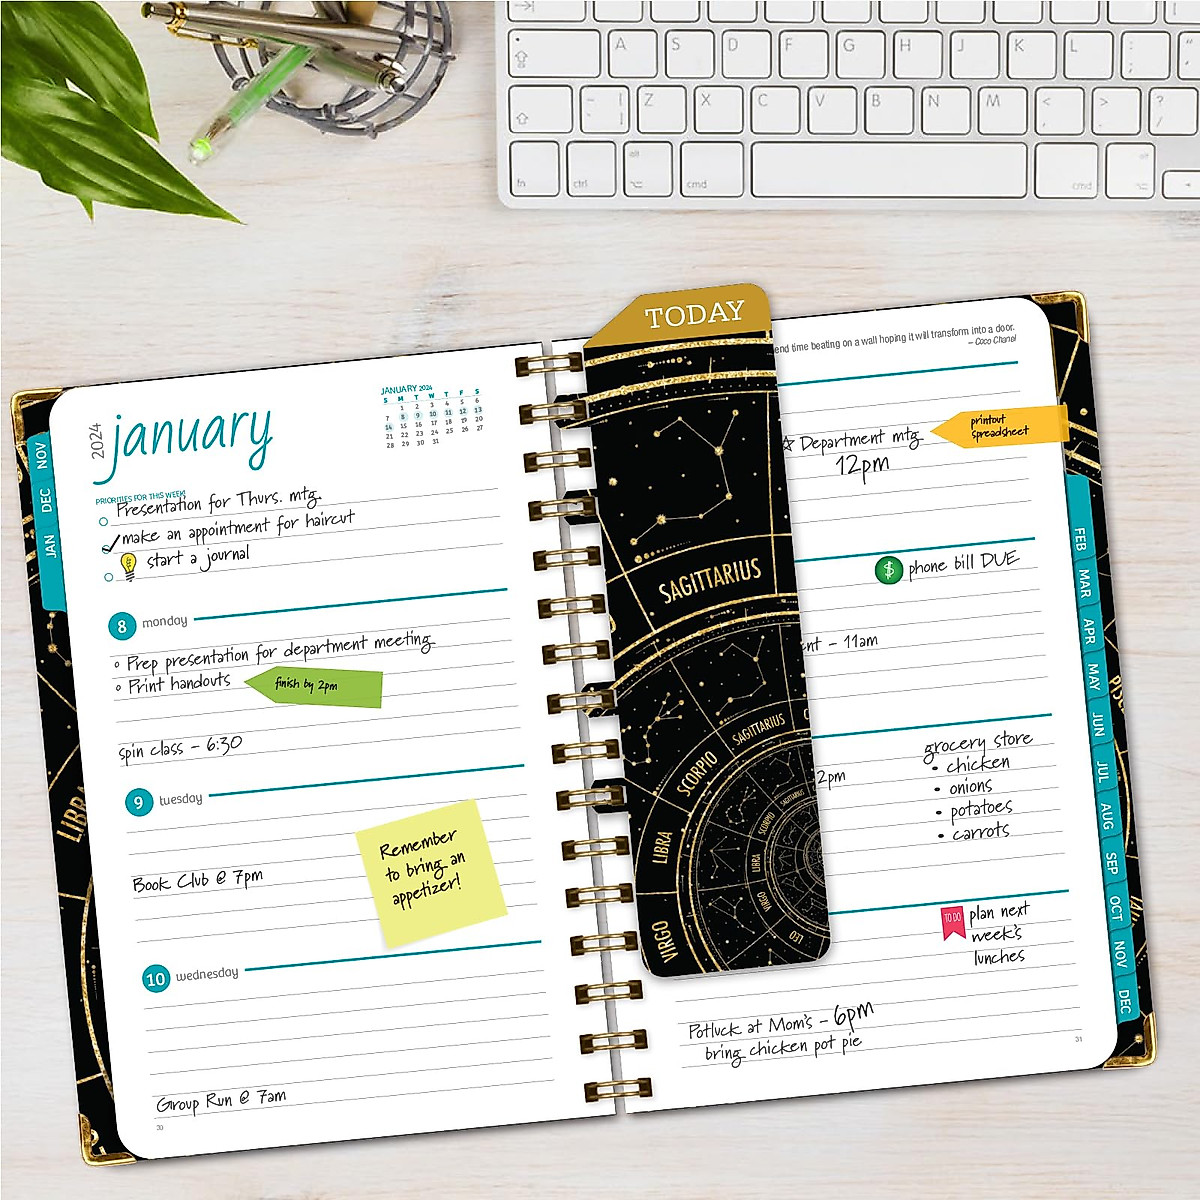 A S D F G H J K L ; :
Z X C V B N M < > ? /
fn ctrl alt cmd cmd alt
TODAY
end time beating on a wall hoping it will transform into a door.
– Coco Chanel
2024
january
JANUARY 2024
S M T W T F S
1 2 3 4 5 6
7 8 9 10 11 12 13
14 15 16 17 18 19 20
21 22 23 24 25 26 27
28 29 30 31
PRIORITIES FOR THIS WEEK
Presentation for Thurs. mtg.
make an appointment for haircut
start a journal
8 monday
Prep presentation for department meeting
Print handouts
finish by 2pm
spin class – 6:30
9 tuesday
Remember
to bring an
appetizer!
Book Club @ 7pm
10 wednesday
Group Run @ 7am
30
NOV
DEC
JAN
LIBRA
SAGITTARIUS
SAGITTARIUS
SCORPIO
LIBRA
VIRGO
SAGITTARIUS
SCORPIO
LIBRA
VIRGO
LEO
Department mtg.
12pm
printout
spreadsheet
$ phone bill DUE
nt – 11am
2pm
grocery store
• chicken
• onions
• potatoes
• carrots
TO DO
plan next
week's
lunches
Potluck at Mom's – 6pm
bring chicken pot pie
31
FEB
MAR
APR
MAY
JUN
JUL
AUG
SEP
OCT
NOV
DEC